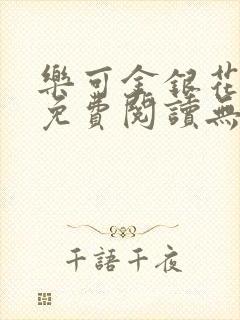 樂可金銀花
免費閱讀無
千語千夜